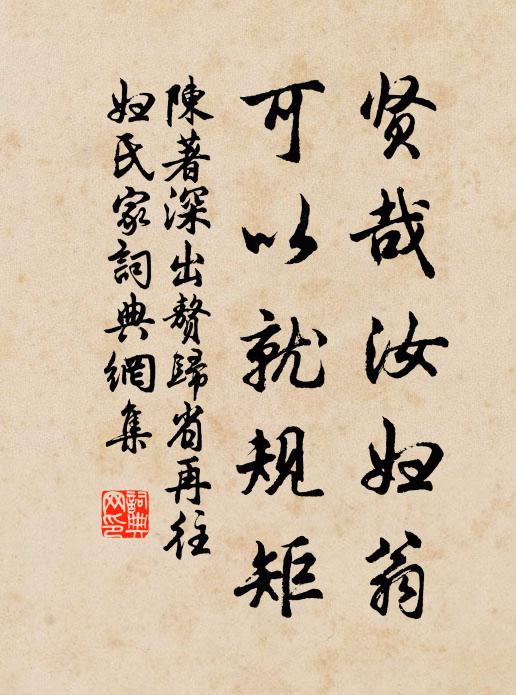 贤哉汝妇翁
可以就规矩
陳著深出贅歸省再往
妇氏家詞典網集
詞典网印